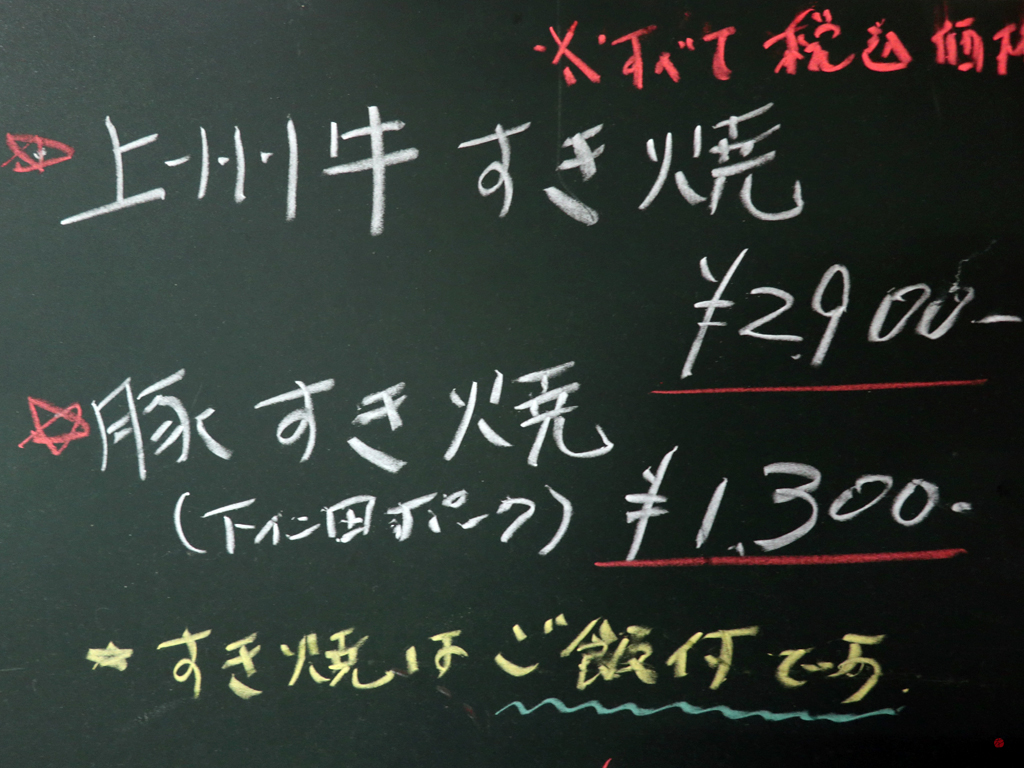 ※すべて税込価格
上州牛すき焼
¥2,900-
豚すき焼
(下仁田ポーク)
¥1,300-
★すき焼はご飯付です.